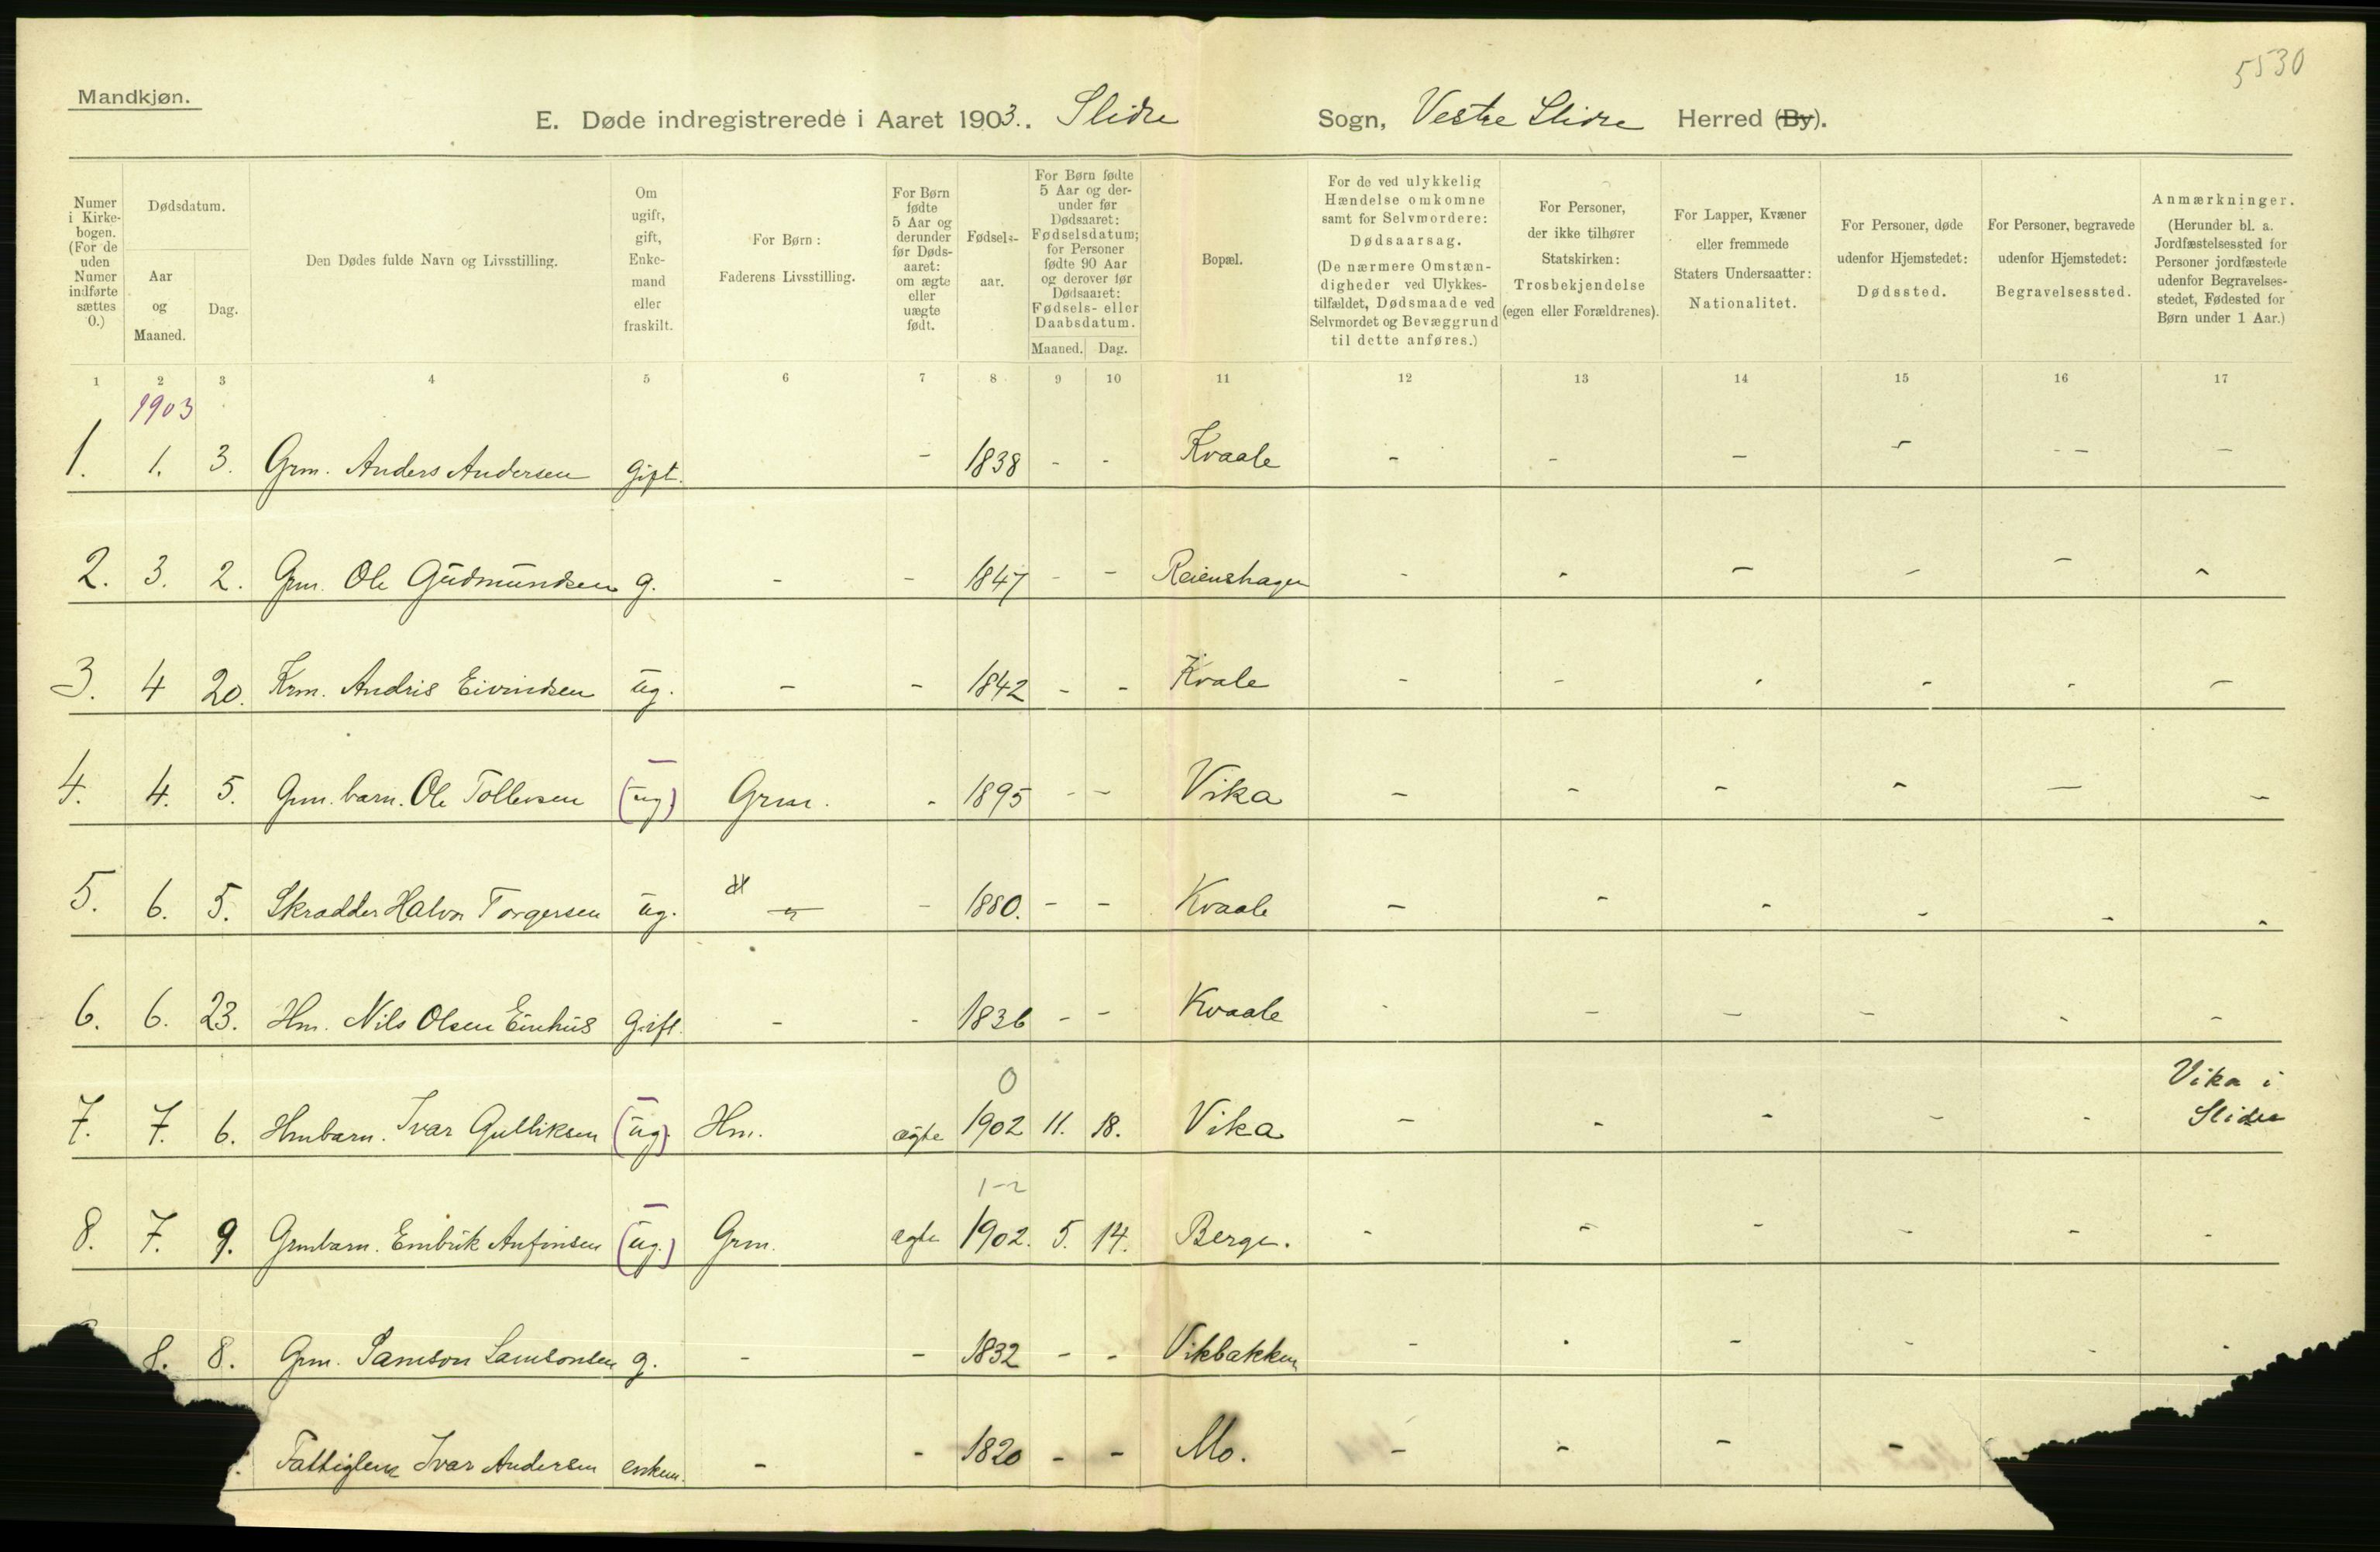 5530
Mandkjøn.
E. Døde indregistrerede i Aaret 1903. Slidre Sogn, Vestre Slidre Herred (By).
Numer i Kirkebogen. (For de uden Numer indførte sættes 0.)
Dødsdatum.
Aar og Maaned.
Dag.
Den Dødes fulde Navn og Livsstilling.
Om ugift, gift, Enkemand eller fraskilt.
For Børn: Faderens Livsstilling.
For Børn fødte 5 Aar og derunder før Dødsaaret: om ægte eller uægte født.
Fødselsaar.
For Børn fødte 5 Aar og derunder før Dødsaaret: Fødselsdatum; for Personer fødte 90 Aar og derover før Dødsaaret: Fødsels- eller Daabsdatum.
Maaned. Dag.
Bopæl.
For de ved ulykkelig Hændelse omkomne samt for Selvmordere: Dødsaarsag. (De nærmere Omstændigheder ved Ulykkestilfældet, Dødsmaade ved Selvmordet og Bevæggrund til dette anføres.)
For Personer, der ikke tilhører Statskirken: Trosbekjendelse (egen eller Forældrenes).
For Lapper, Kvæner eller fremmede Staters Undersaatter: Nationalitet.
For Personer, døde udenfor Hjemstedet: Dødssted.
For Personer, begravede udenfor Hjemstedet: Begravelsessted.
Anmærkninger. (Herunder bl. a. Jordfæstelsessted for Personer jordfæstede udenfor Begravelsesstedet, Fødested for Børn under 1 Aar.)
1 2 3 4 5 6 7 8 9 10 11 12 13 14 15 16 17
1903
1. 1. 3. Grm. Anders Andersen gift. - 1838 - - Kvaale - - - - - - -
2. 3. 2. Grm. Ole Gudmundsen g. - - 1847 - - Reienshagen - - - - - -
3. 4 20. Krm. Andris Eivindsen ug. - - 1842 - - Kvale - - - - - -
4. 4. 5. Grm. barn. Ole Tollevsen (ug) Grm. - 1895 - - Vika - - - - - -
5. 6. 5. Skrædder Halvor Torgersen ug. - - 1880. - - Kvaale - - - - - -
6. 6. 23. Hm. Nils Olsen Einhus gift. - - 1836 - - Kvaale - - - - - -
0
7. 7. 6. Hmbarn. Ivar Gulliksen (ug). Hm. ægte 1902 11. 18. Vika - - - - - Vika i Slidre
1-2
8. 7. 9. Grmbarn. Embrik Anfinsen (ug.) Grm. ægte 1902. 5. 14. Berge. - - - - - -
8. 8. Grm. Samson Samsonsen g. - - 1832 - - Vikbakken - - - - - -
Fattiglem Ivar Andersen enkem. - - 1820 - - Mo. - - - -